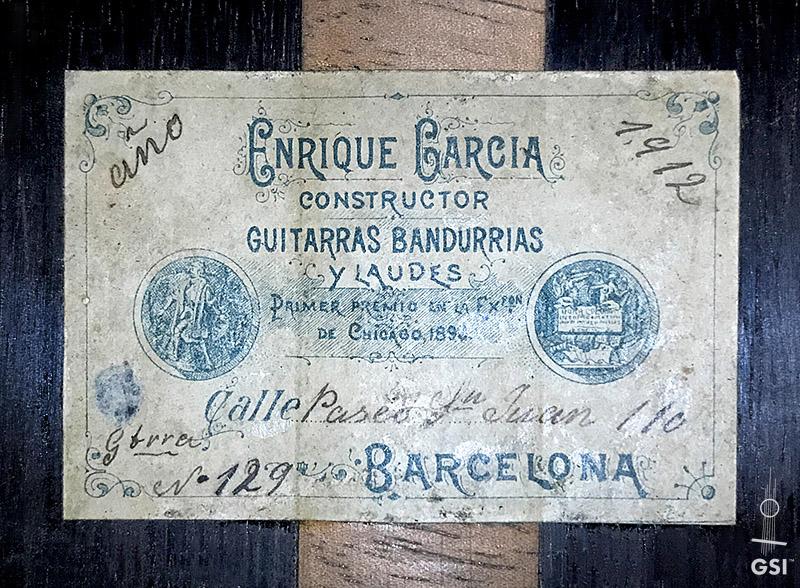 año
1.912
ENRIQUE GARCIA
CONSTRUCTOR
GUITARRAS BANDURRIAS
Y LAUDES
PRIMER PREMIO EN LA EXPON
DE CHICAGO, 189
Calle Paseo Sn Juan 110
Gtrra
No 129
BARCELONA
GSI